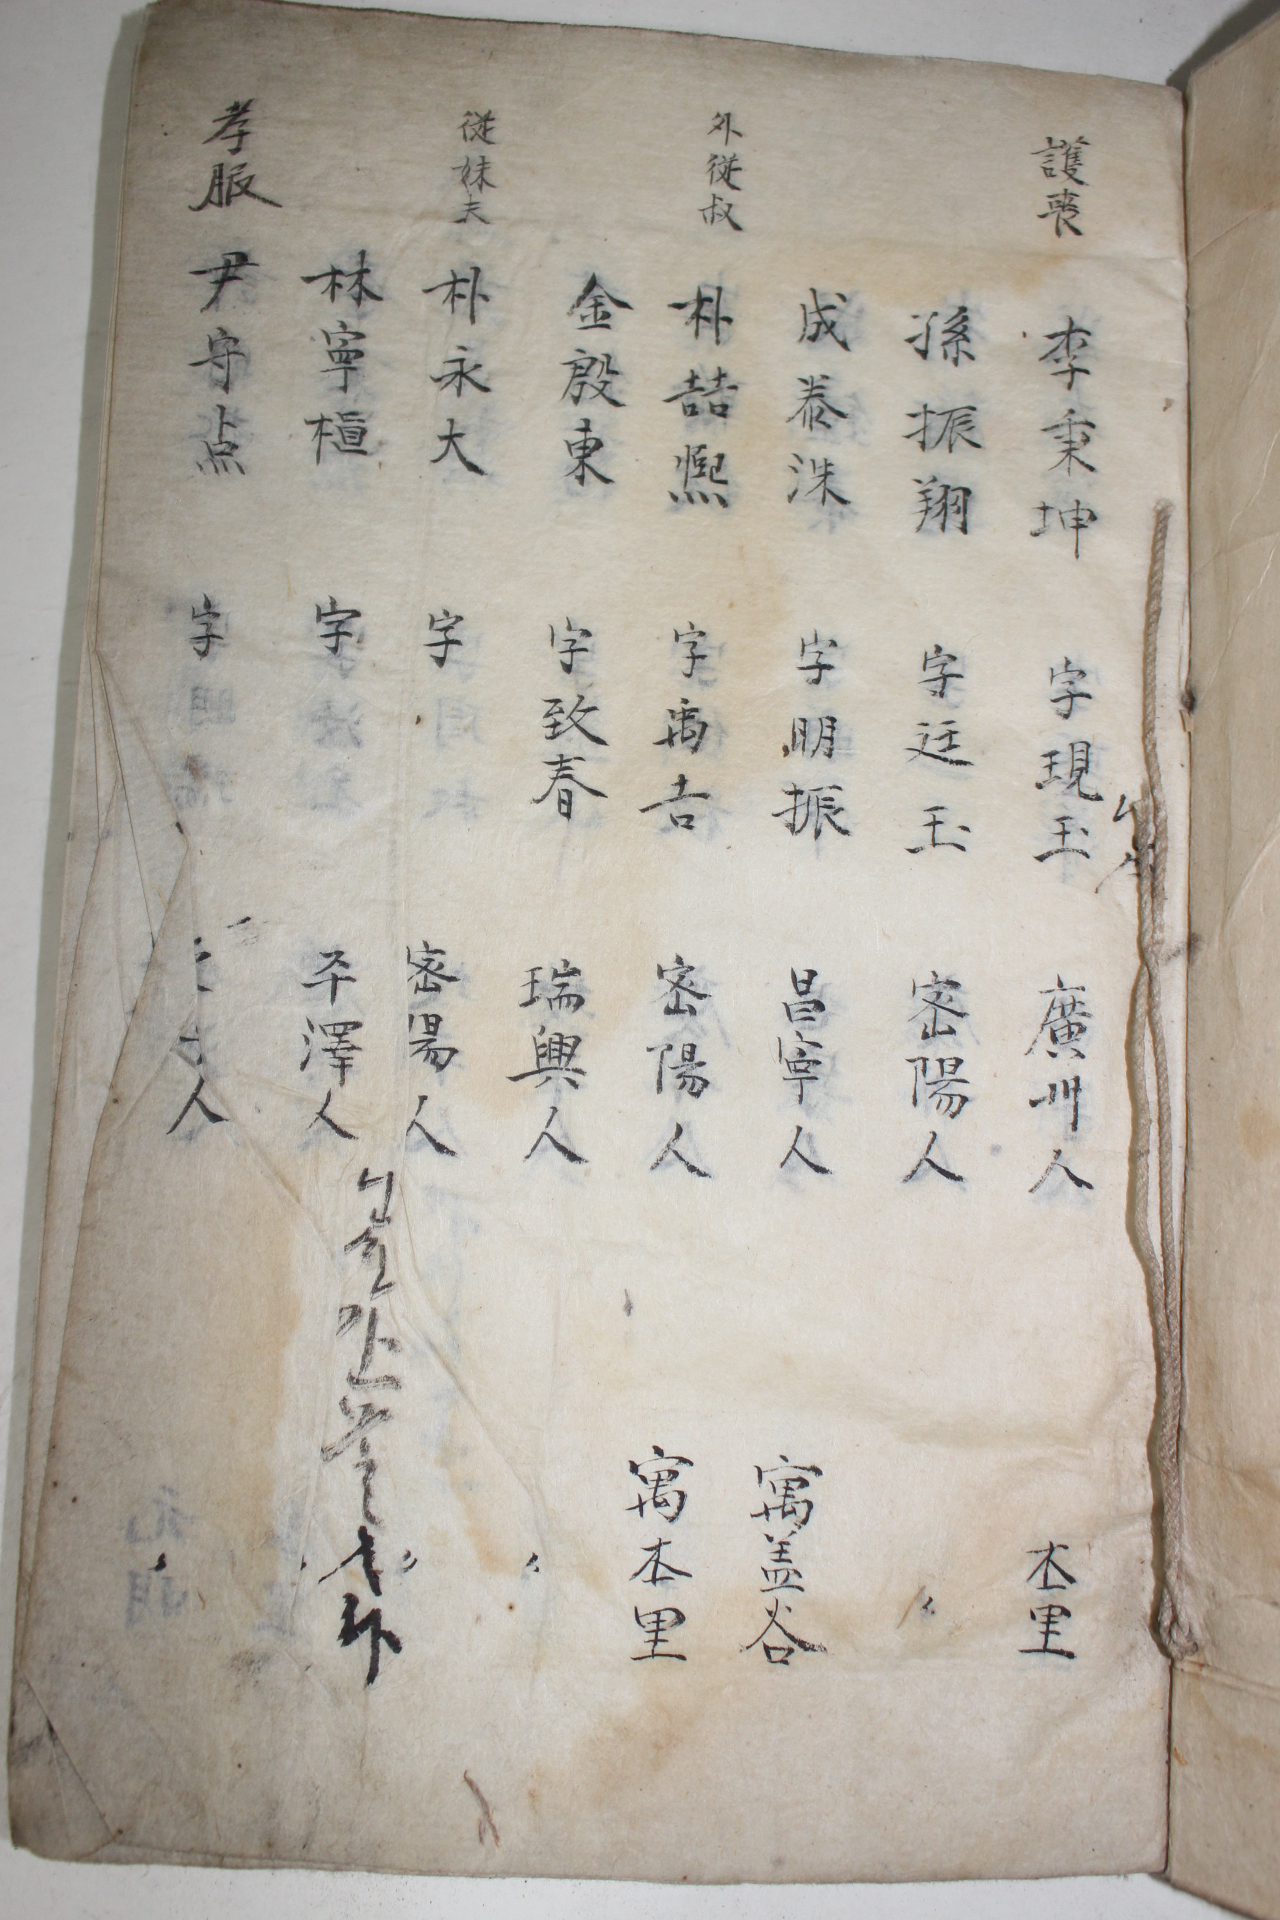 護喪 李秉坤 字現玉 廣州人 本里
孫振翔 字廷玉 密陽人 〻
成泰洙 字明振 昌寧人 寓盖谷
外從叔 朴喆熙 字禹吉 密陽人 寓本里
金殷東 字致春 瑞興人 〻
從妹夫 朴永大 字 密陽人 〻
林寧楦 字 平澤人 〻
孝服 尹守点 字 人 〻